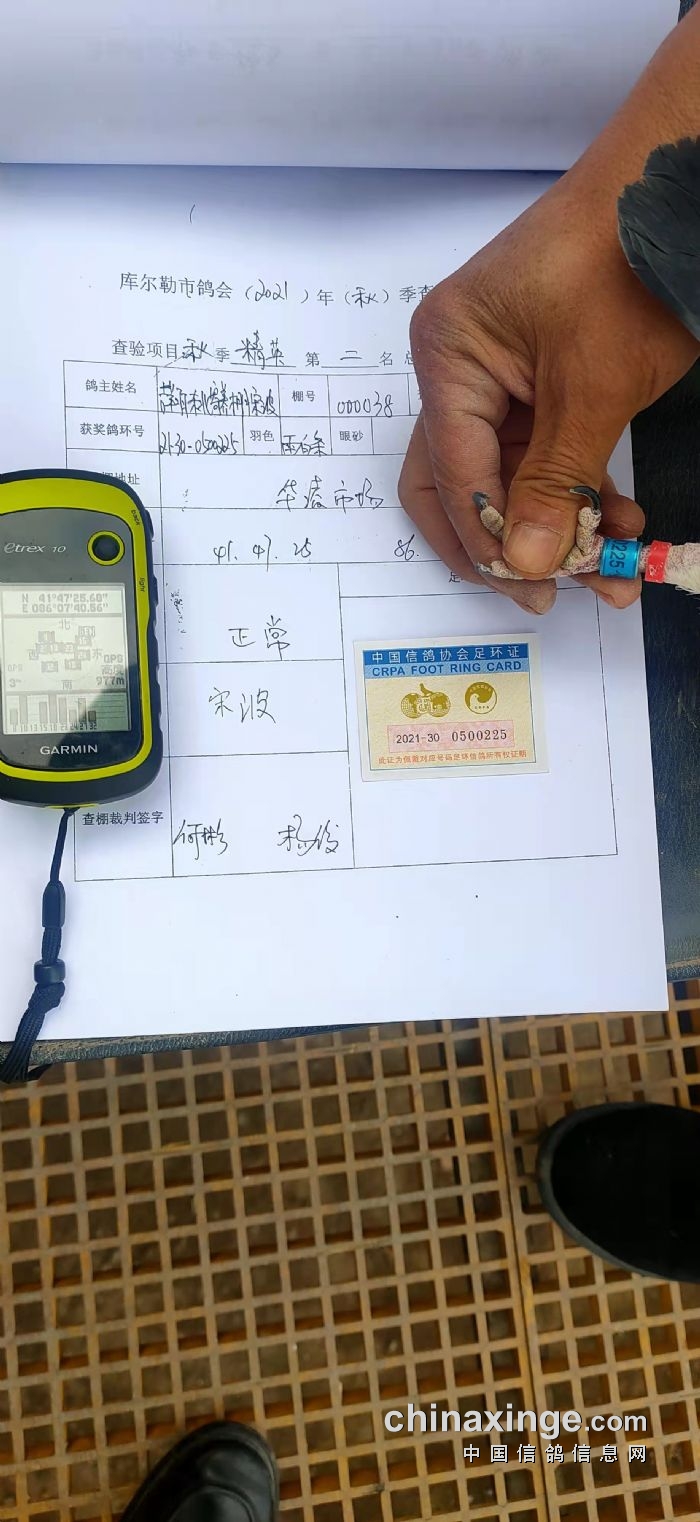 库尔勒市鸽会（2021）年（秋）季查
查验项目 秋 季 精英 第 二 名 总
鸽主姓名 宋波 棚号 000038
获奖鸽环号 21-30-0500225 羽色 雨白条 眼砂
地址 华凌市场
41.47.25 86.
正常
宋波
查棚裁判签字 何彬 杨俊
eTrex 10
back
light
N 41°47'25.60"
E 086°07'40.56"
北
西 东
南
GPS
高度
977m
3m
GARMIN
中国信鸽协会足环证
CRPA FOOT RING CARD
2021-30 0500225
此证为佩戴对应号码足环信鸽所有权证明
225
chinaxinge.com
中国信鸽信息网